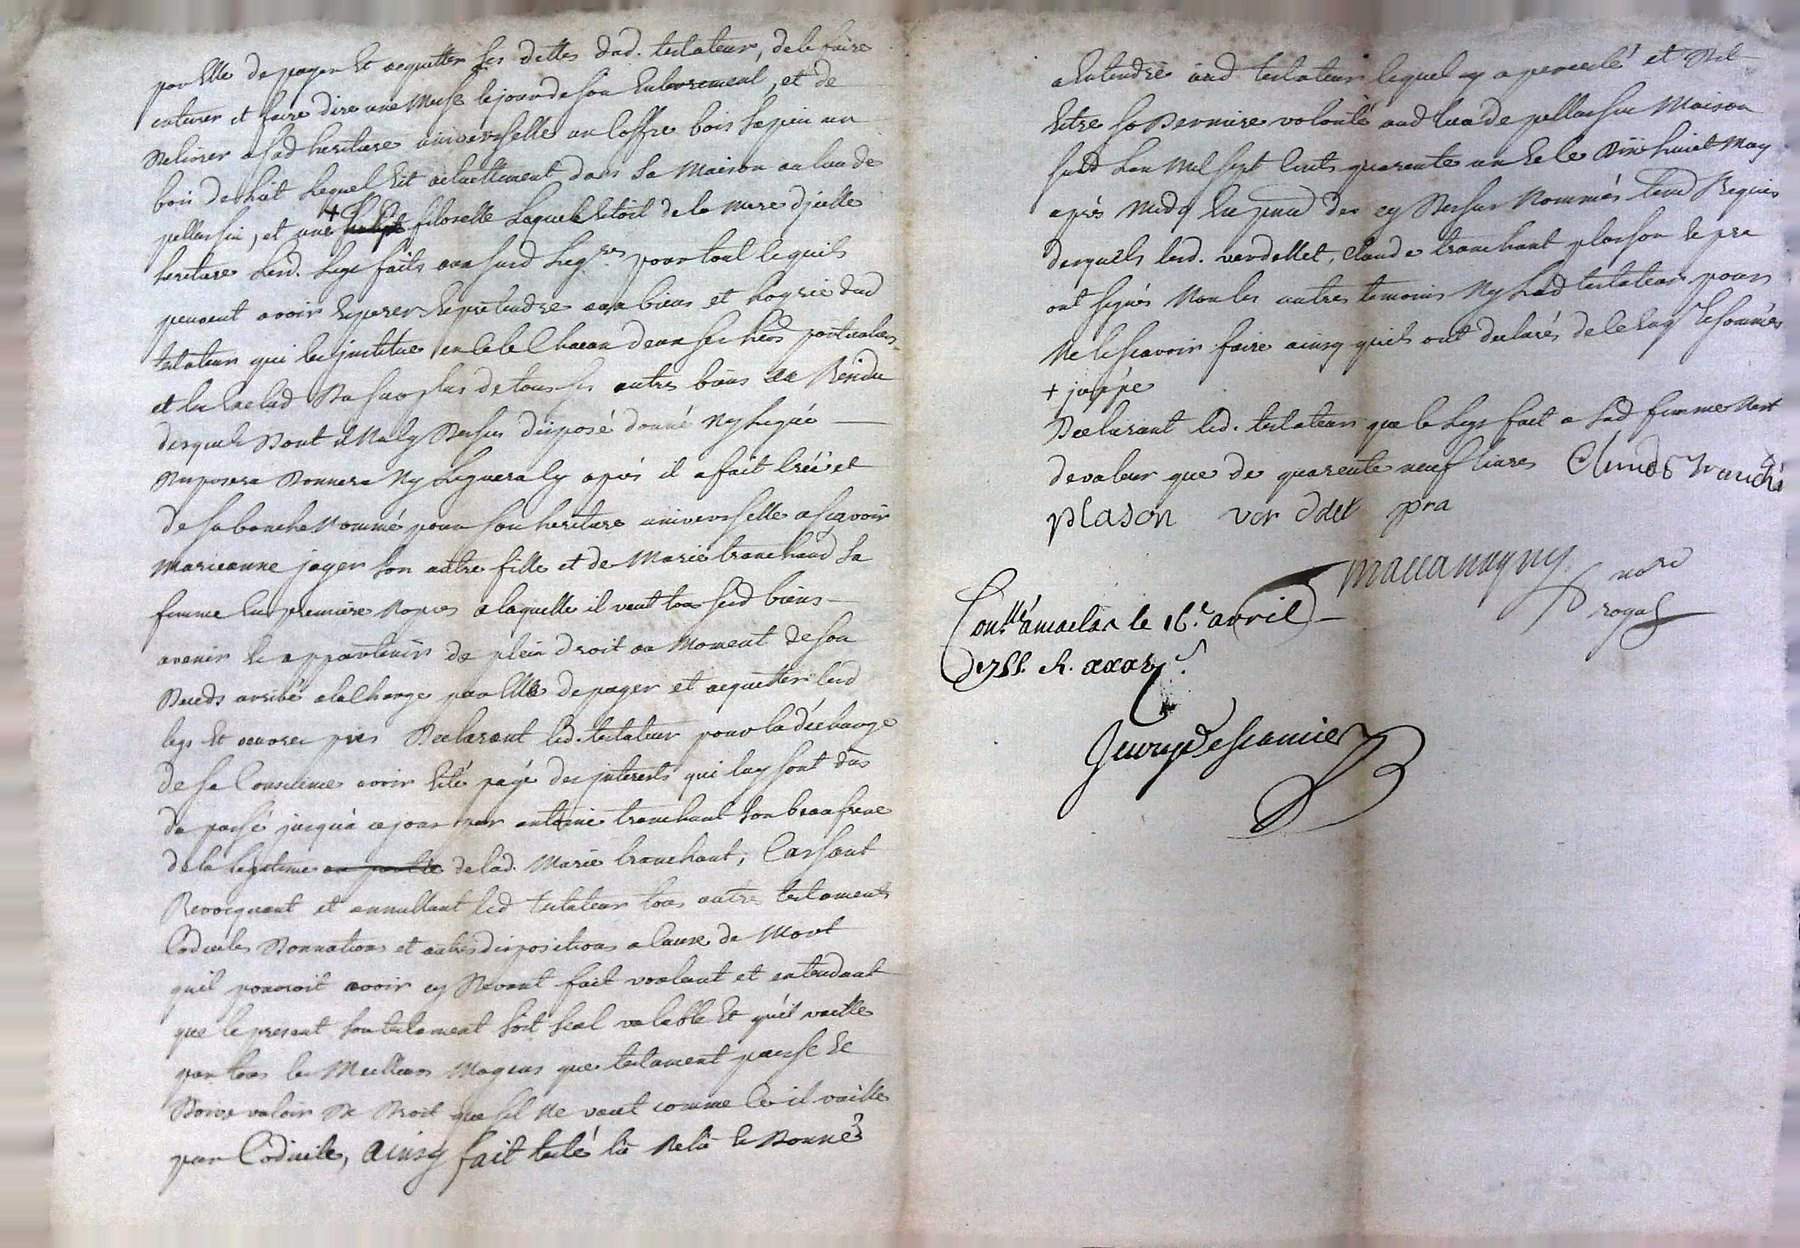 par Elle de payer Et acquitter les dettes dud. testateur, de le faire
enterrer et faire dire une Messe le jour de son Enterrement, et de
Delivrer a sad heritiere universelle un Coffre bois sapin un
bois de lit lequel Est actuellement dans sa Maison au lieu de
pellarsin, et une + filoselle laquelle Etoit de la mere d'jcelle
heritiere Lesd. legs faits aux susd leg.res pour tout ce quils
peuvent avoir Esperer Et pretendre aux biens et hoyrie dud
testateur qui les jnstitue en cela Chacun deux ses heos particuliers
et en de tous ses autres biens au Residu
desquels Dont il N'a cy Dessus disposé donné Ny legué
Disposera Donnera Ny leguera cy après il a fait créé et
de sa bouche Nommé pour son heritiere universelle ascavoir
Marieanne joger son autre fille et de Marie tranchand sa
femme En premiere Nopces a laquelle il veut tous sesd biens
avenir Et appartenir de plein droit au Moment de son
Deceds arrivé a la Charge par Elle de payer et acquitter lesd
legs Et œuvres pies Declarant led. testateur pour la décharge
de sa Conscience avoir Eté payé des jnterests qui luy sont dûs
du passé jusqu'a ce jour par antoine tranchant son beaufrere
de la legitime de lad. Marie tranchant, Cassant
Revocquant et annullant led testateur tous autres testaments
Codiciles Donnations et autres dispositions a Cause de Mort
quil pourroit avoir cy Devant fait voulant et entendant
que le present son testament soit seul valable Et qu'il vaille
par tous les Meilleurs Moyens que testament puisse Et
Doive valoir De Droit que sil Ne vaut comme Ce il vaille
par Codicile, ainsy fait testé lû Relû Et Donné
a Entendre aud testateur lequel y a perceveré et Dit
Estre sa Derniere volonté aud lieu de pellarsin Maison
susd Lan Mil sept Cents quarente un Et le Dix huict May
après Midy En prnce des cy Dessus Nommés tend Requis
desquels lesd. verdellet, Claude tranchant plasson Et pra
ont signés Non les autres temoins Ny Led testateur pour
Ne le scavoir faire ainsy quils ont declarés de ce Enq Et sommés
+ juppe
Declarant led. testateur que le legs fait a sad femme Nest
de valeur que de quarente neuf livres Claude tranchā
plason ver ddet pra
Maccanagny no.re
royal
Con.llé a maclas le 16.e avril
Geury Descamier